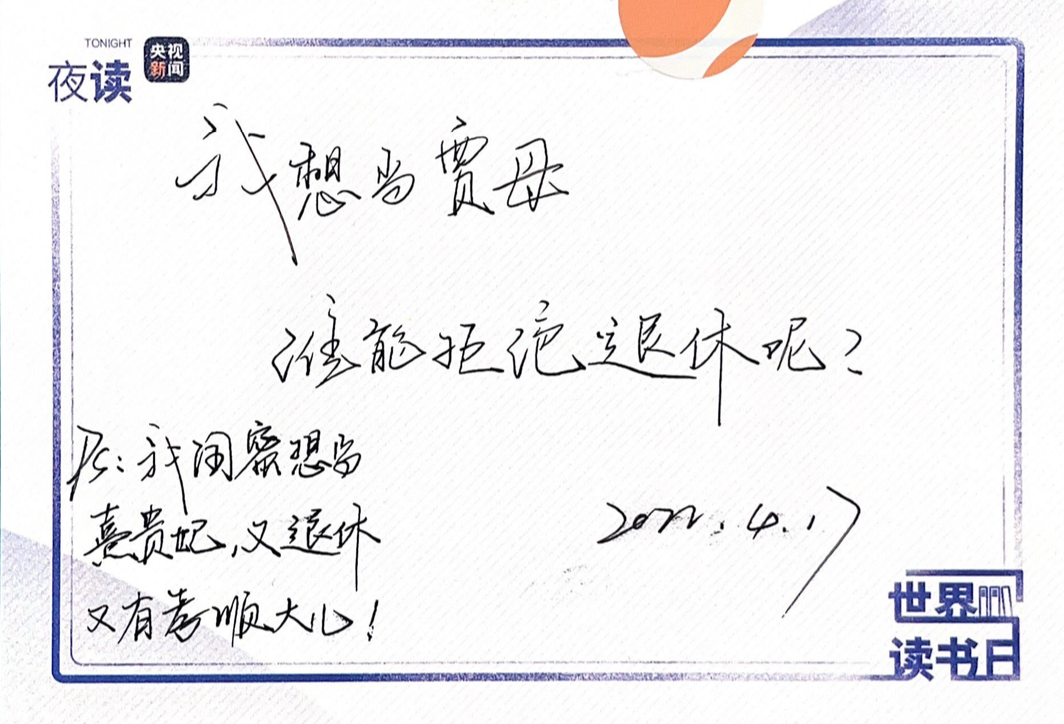 TONIGHT
夜读
央视
新闻
我想当贾母
谁能拒绝退休呢?
Ps:我闺蜜想当
熹贵妃,又退休
又有孝顺大儿!
2022.4.17
世界
读书日